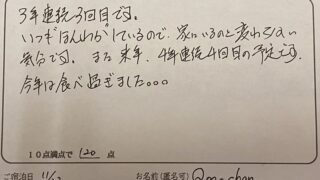 3年連続3回目です。
いつもほんわかしているので、家にいるのと変わらない
気分です。また来年、4年連続4回目の予定です。
今年は食べ過ぎました。。。
10点満点で 120 点
ご宿泊日 11/12 お名前(匿名可)